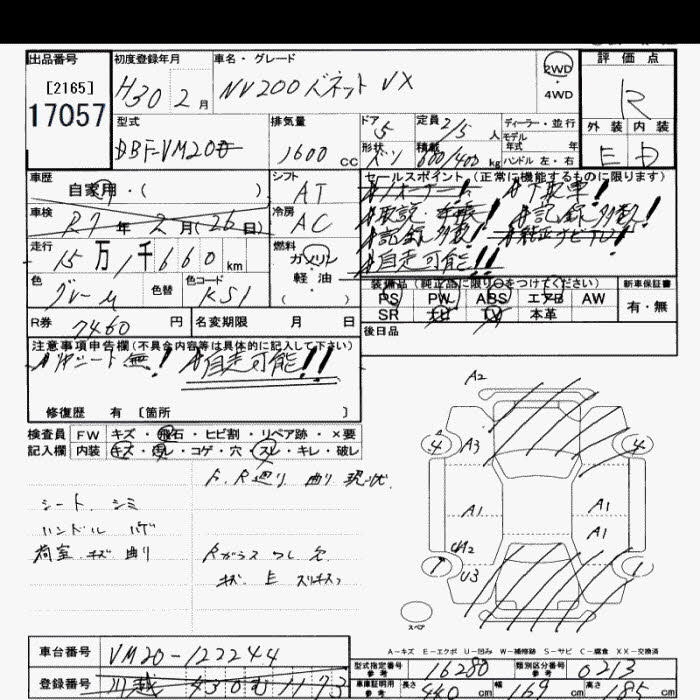 出品番号
[2165]
17057
初度登録年月
H30 2月
車名・グレード
NV200 バネット VX
2WD
・
4WD
評価点
R
型式
DBF-VM20
排気量
1600 cc
ドア
5
形状
バン
定員 2/5 人
積載 600/400 kg
ディーラー・並行
モデル
年式 年
ハンドル 左・右
外装 内装
E D
車歴
自家用・( )
シフト
AT
セールスポイント (正常に機能するものに限ります)
車検
R7年2月(26日)
冷房
AC
記録多数!
自走可能!!
走行
15万1千660km
燃料
ガソリン
軽油
( )
色
グレーM
色替
色コード
K51
装備品 (純正品に限り○をつけてください)
PS PW ABS エアB AW
SR ナビ TV 本革
新車保証書
有・無
R券
7460円
名変期限 月 日
後日品
注意事項申告欄(不具合内容等は具体的に記入して下さい)
シート無! 自走可能!!
修復歴 有 [箇所 ]
検査員
記入欄
FW キズ・飛石・ヒビ割・リペア跡・×要
内装 キズ・汚レ・コゲ・穴・スレ・キレ・破レ
F.R廻り 曲り 現状
シート シミ
ハンドル ハゲ
荷室 キズ 曲り
Rガラス ワレ 欠
A2
4 A3 4
A1 A1
A1
UA2
1 U3 1
スペア
A-キズ E-エクボ U-凹み W-補修跡 S-サビ C-腐食 XX-交換済
車台番号
VM20-122244
登録番号
川越 430 む 1173
型式指定番号
参考
16280
類別区分番号
参考
0213
車庫証明用
参考
長さ 440 cm 幅 169 cm 高さ 185 cm